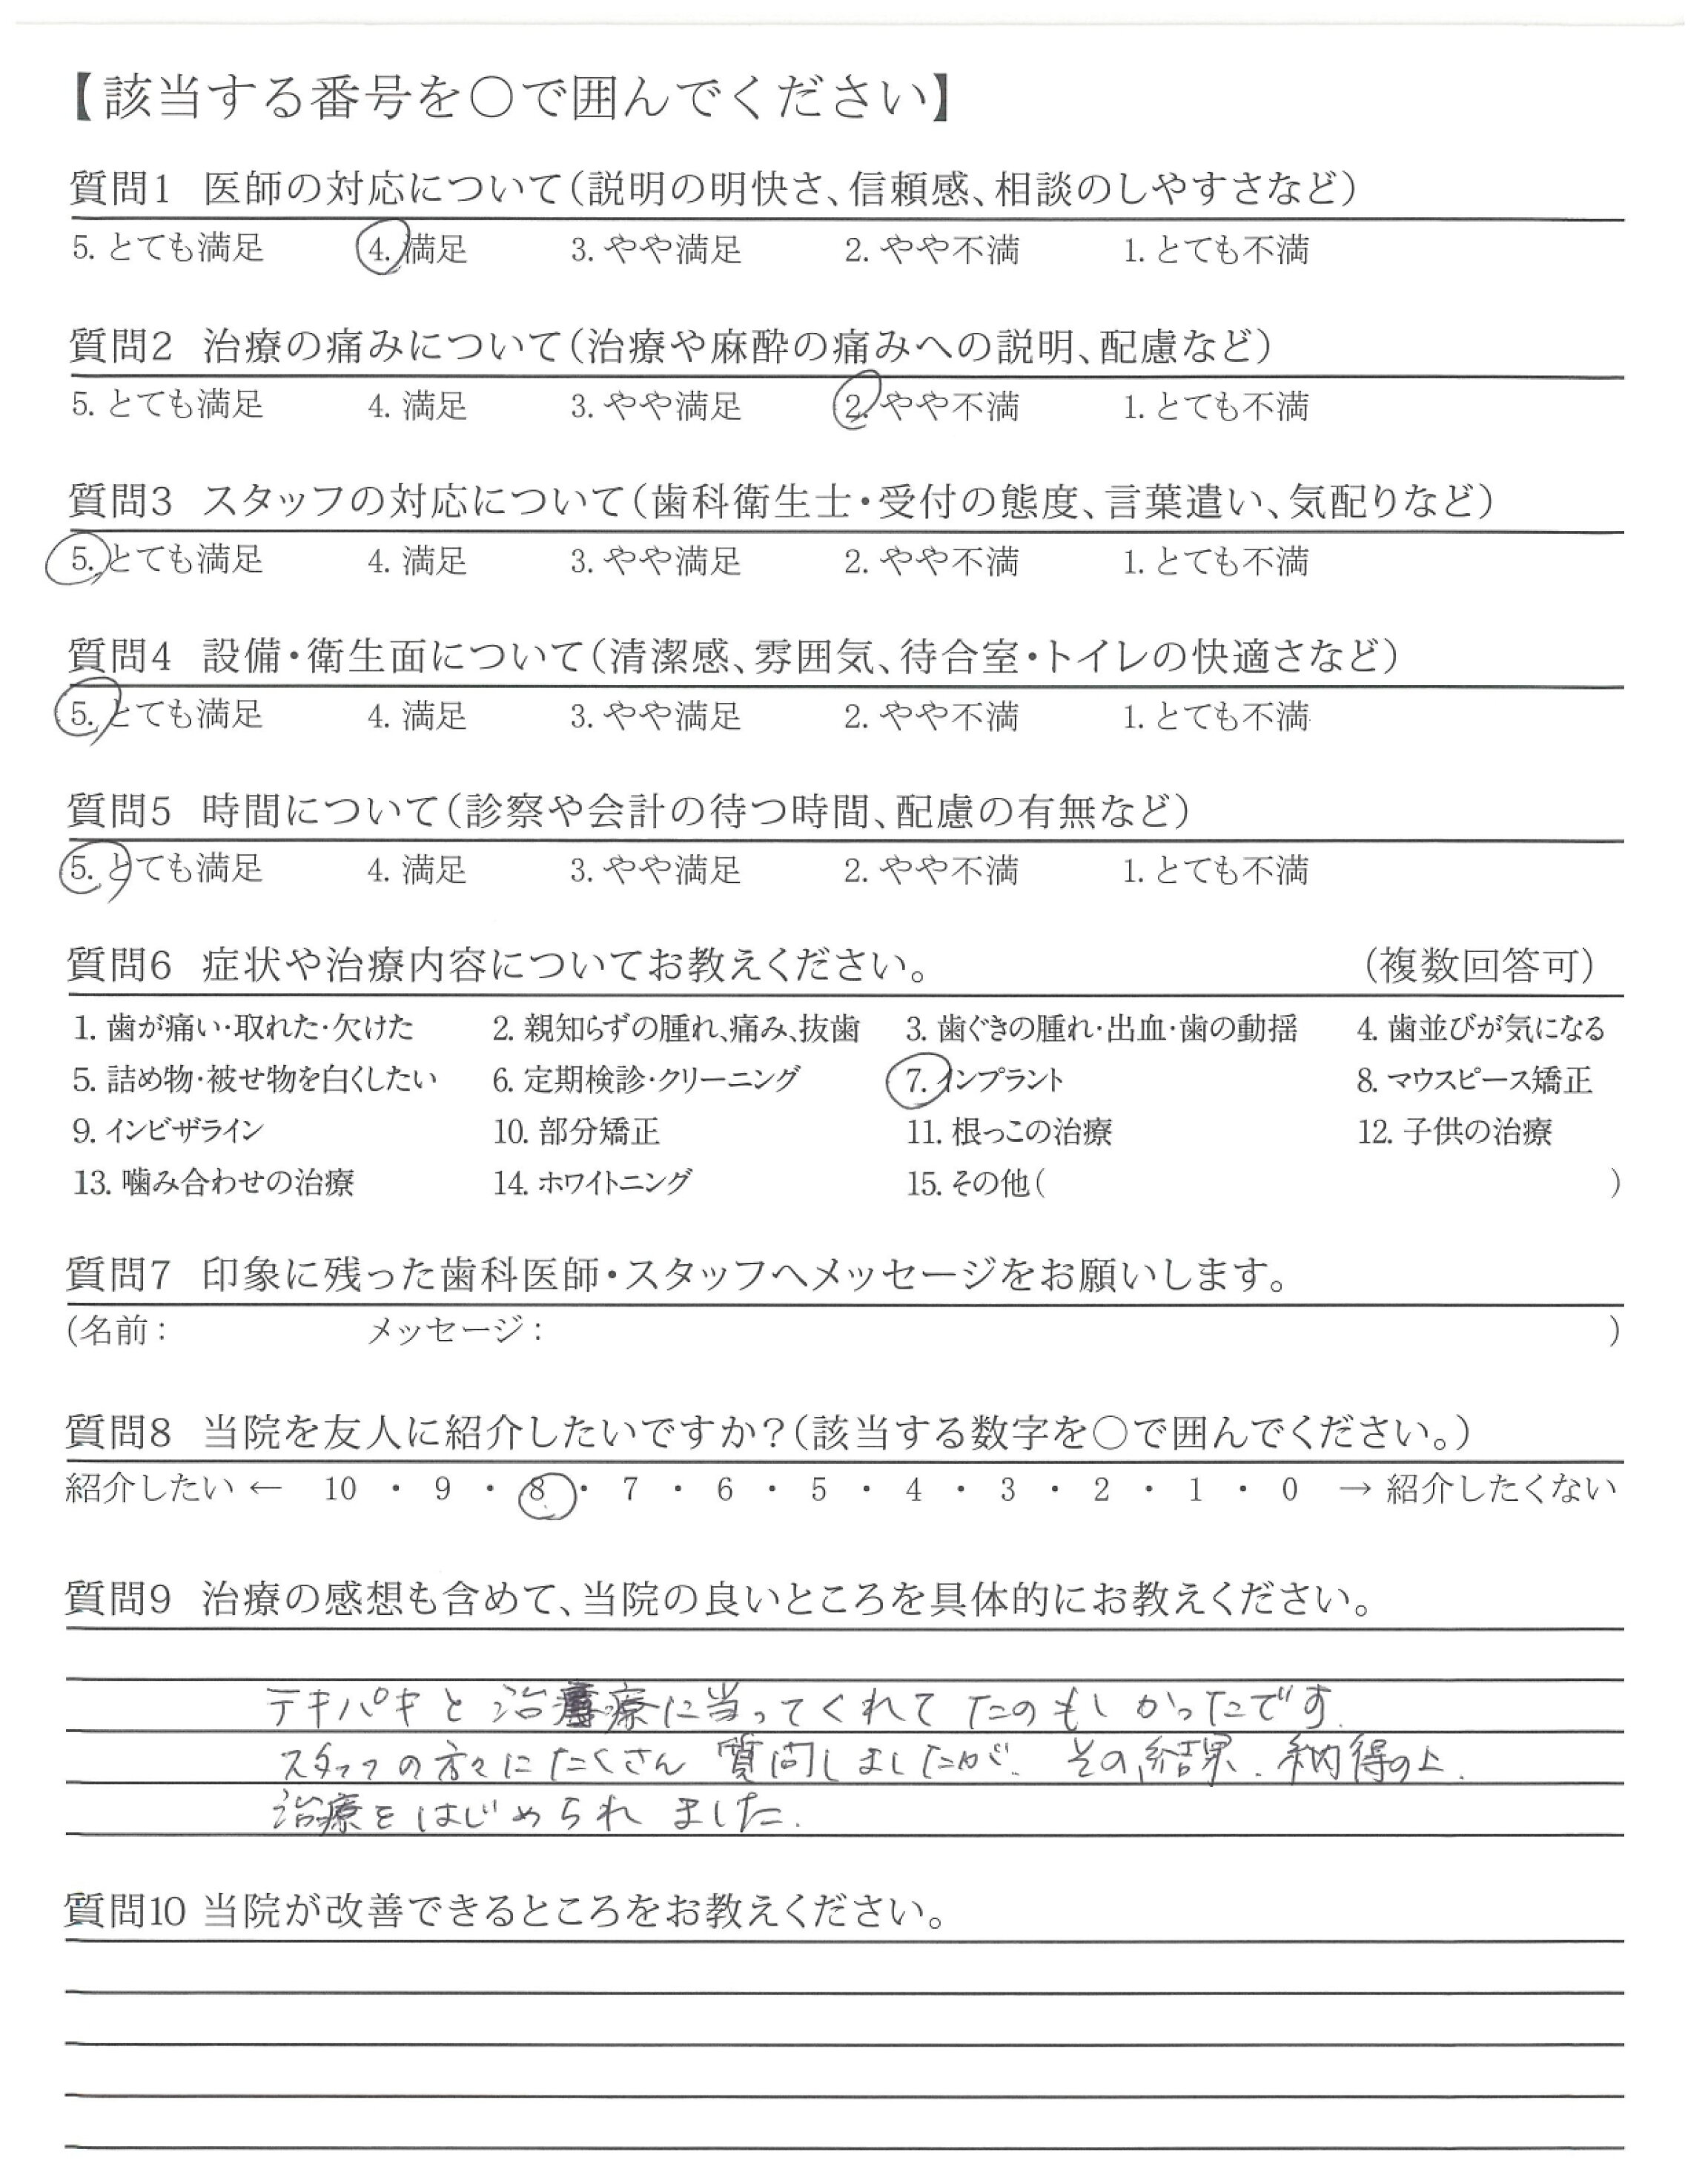 【該当する番号を〇で囲んでください】
質問1 医師の対応について(説明の明快さ、信頼感、相談のしやすさなど)
5. とても満足 4. 満足 3. やや満足 2. やや不満 1. とても不満
質問2 治療の痛みについて(治療や麻酔の痛みへの説明、配慮など)
5. とても満足 4. 満足 3. やや満足 2. やや不満 1. とても不満
質問3 スタッフの対応について(歯科衛生士・受付の態度、言葉遣い、気配りなど)
5. とても満足 4. 満足 3. やや満足 2. やや不満 1. とても不満
質問4 設備・衛生面について(清潔感、雰囲気、待合室・トイレの快適さなど)
5. とても満足 4. 満足 3. やや満足 2. やや不満 1. とても不満
質問5 時間について(診察や会計の待つ時間、配慮の有無など)
5. とても満足 4. 満足 3. やや満足 2. やや不満 1. とても不満
質問6 症状や治療内容についてお教えください。 (複数回答可)
1. 歯が痛い・取れた・欠けた 2. 親知らずの腫れ、痛み、抜歯 3. 歯ぐきの腫れ・出血・歯の動揺 4. 歯並びが気になる
5. 詰め物・被せ物を白くしたい 6. 定期検診・クリーニング 7. インプラント 8. マウスピース矯正
9. インビザライン 10. 部分矯正 11. 根っこの治療 12. 子供の治療
13. 噛み合わせの治療 14. ホワイトニング 15. その他( )
質問7 印象に残った歯科医師・スタッフへメッセージをお願いします。
(名前: メッセージ: )
質問8 当院を友人に紹介したいですか?(該当する数字を〇で囲んでください。)
紹介したい ← 10 ・ 9 ・ 8 ・ 7 ・ 6 ・ 5 ・ 4 ・ 3 ・ 2 ・ 1 ・ 0 → 紹介したくない
質問9 治療の感想も含めて、当院の良いところを具体的にお教えください。
テキパキと治療に当ってくれてたのもしかったです.
スタッフの方々にたくさん質問しましたが、その結果、納得の上、
治療をはじめられました.
質問10 当院が改善できるところをお教えください。